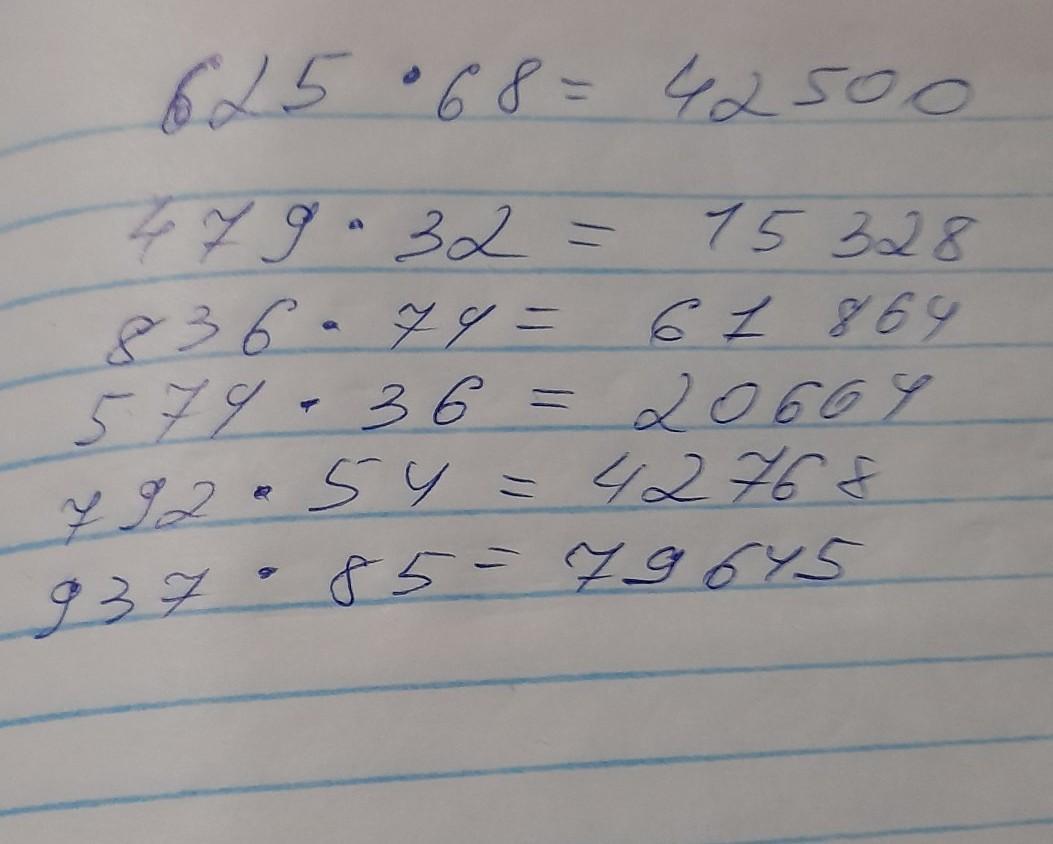 625 · 68 = 42500
479 · 32 = 15 328
836 · 74 = 61 864
574 · 36 = 20664
792 · 54 = 42768
937 · 85 = 79645